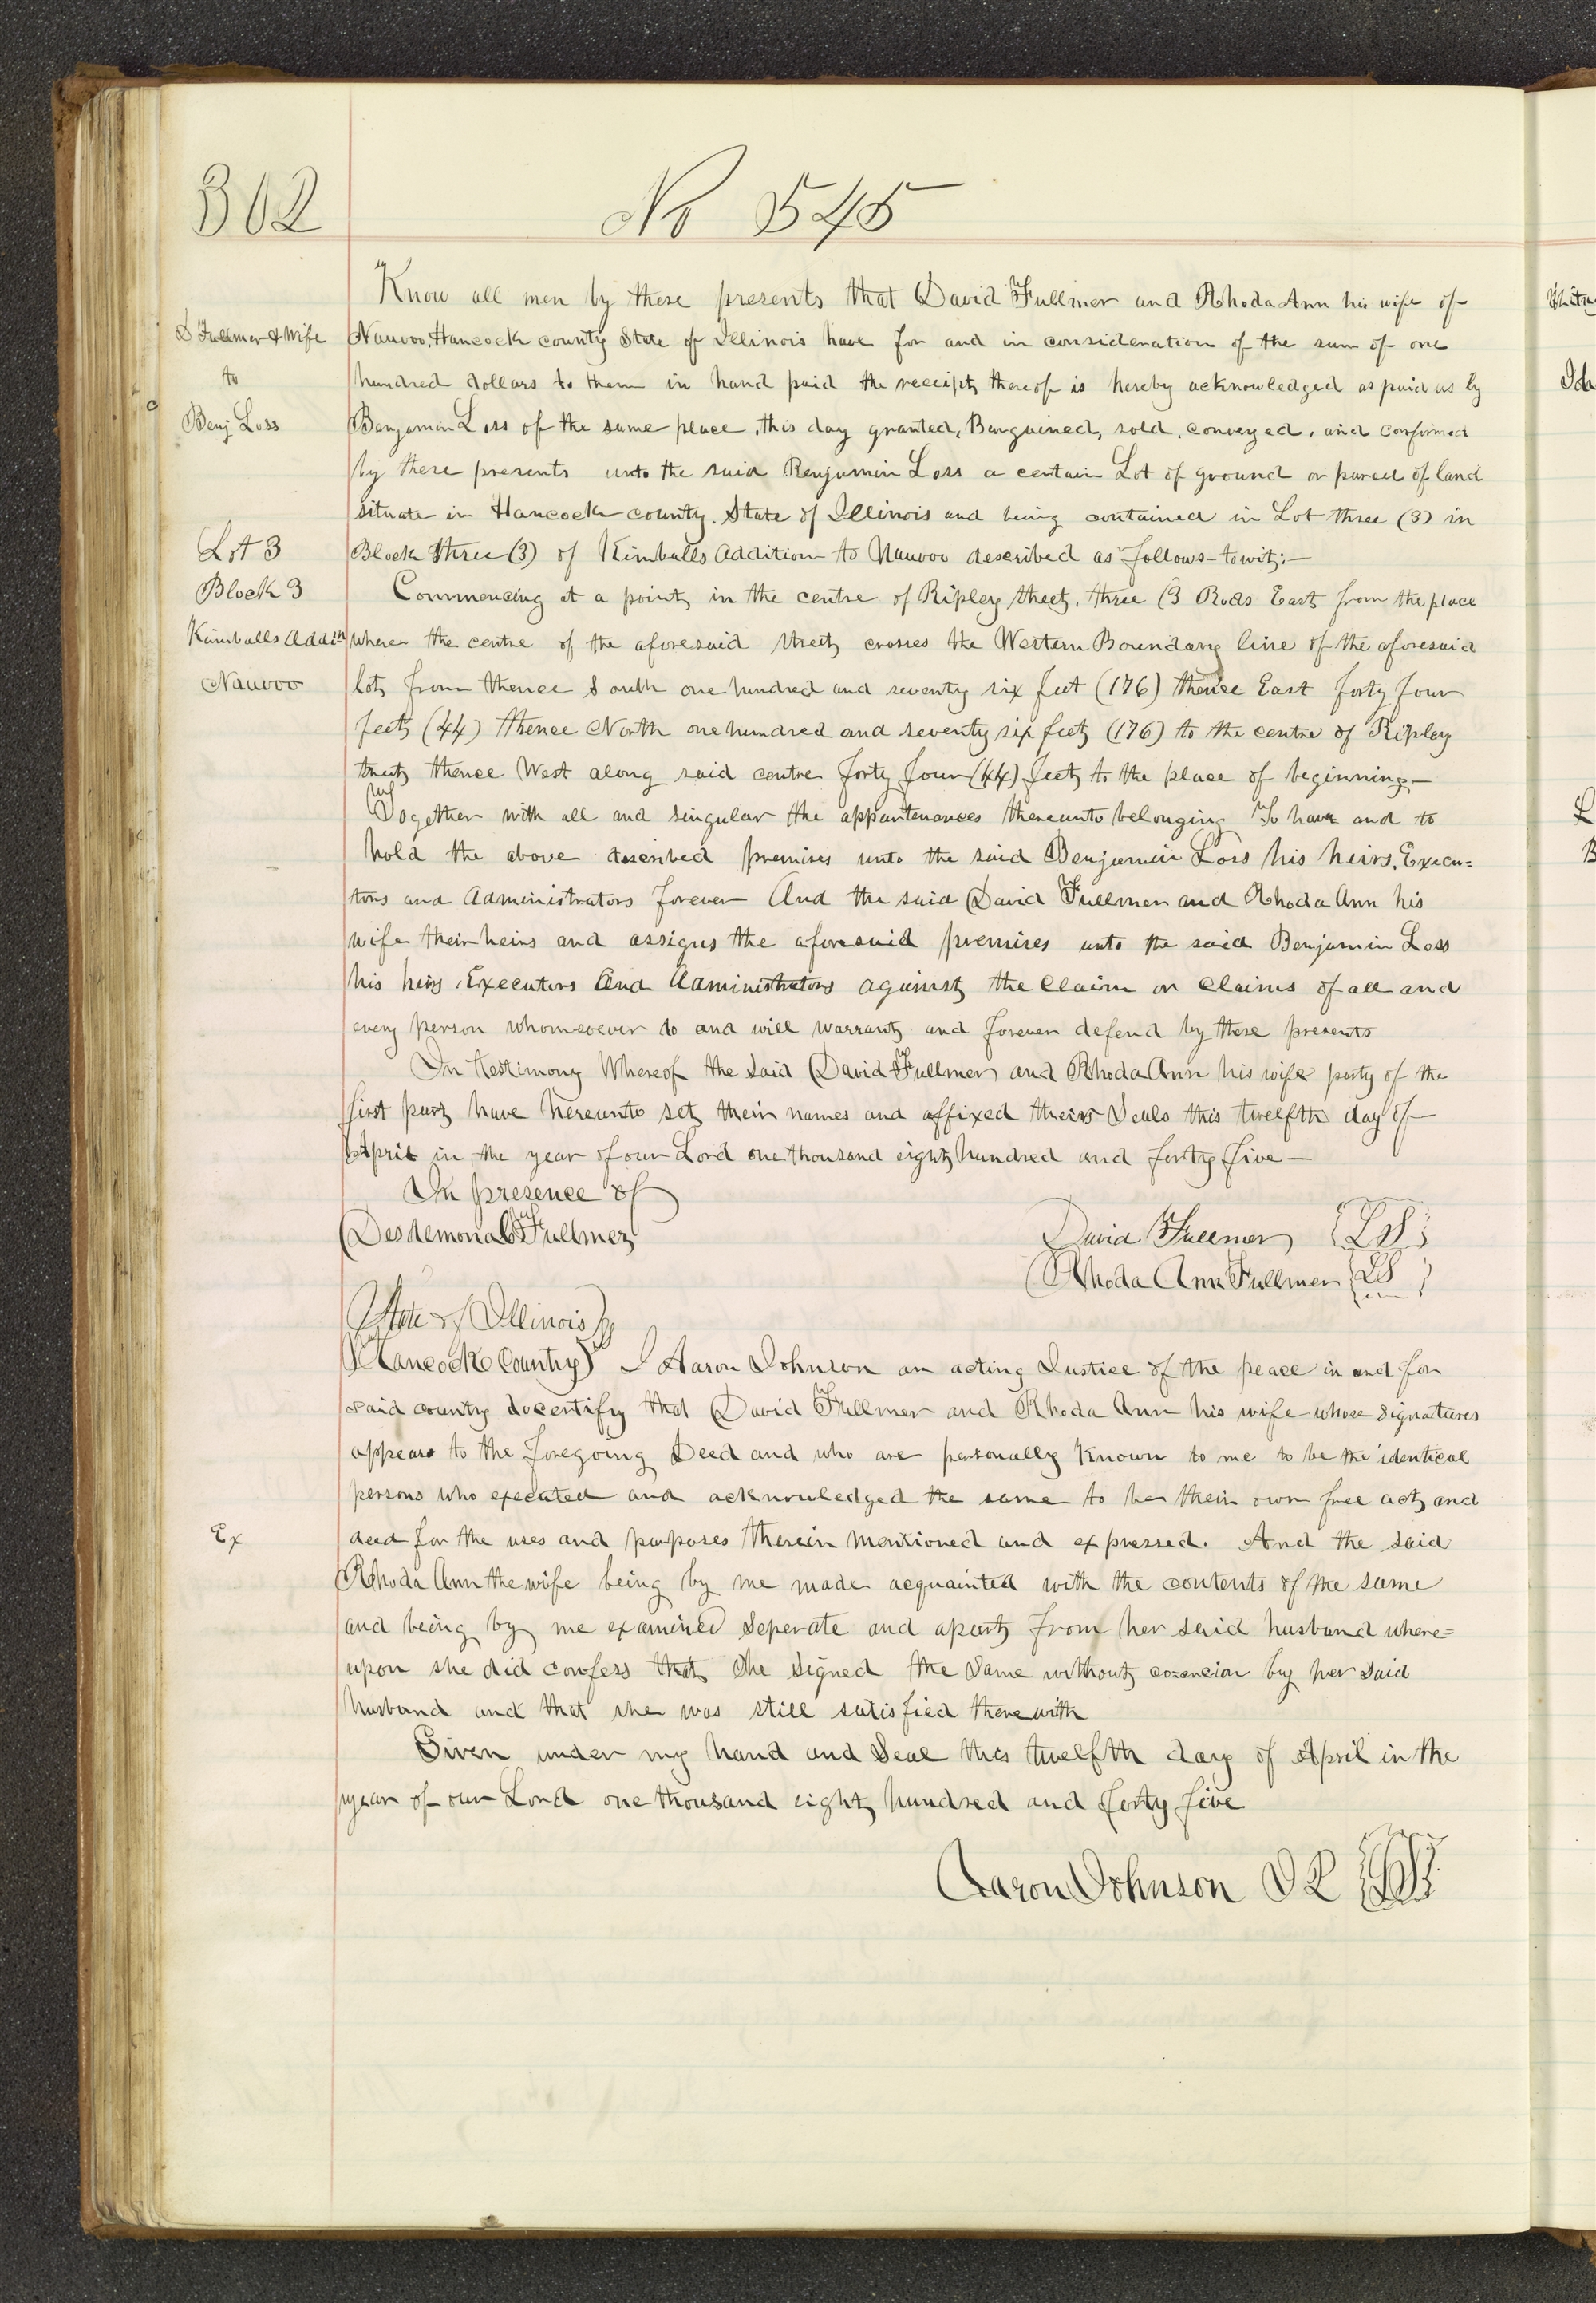 302
No 545
Know all men by these presents that David Fullmer and Rhoda Ann his wife of
D Fullmer & Wife
Nauvoo, Hancock county State of Illinois have for and in consideration of the sum of one
to
hundred dollars to them in hand paid the receipt thereof is hereby acknowledged as paid us by
Benj Loss
Benjamin Loss of the same place, this day granted, Bargained, sold, conveyed, and confirmed
by these presents unto the said Benjamin Loss a certain Lot of ground or parcel of land
situate in Hancock county. State of Illinois and being contained in Lot three (3) in
Lot 3
Block three (3) of Kimballs Addition to Nauvoo described as follows-towit:-
Block 3
Commencing at a point in the centre of Ripley street, three (3 Rods East from the place
Kimballs Addith
where the centre of the aforesaid street crosses the Western Boundary line of the aforesaid
Nauvoo
lot, from thence South one hundred and seventy six feet (176) thence East forty four
feet (44) thence North one hundred and seventy six feet (176) to the centre of Ripley
street thence West along said centre forty four (44) feet to the place of beginning-
Together with all and singular the appurtenances thereunto belonging To have and to
hold the above described premises unto the said Benjamin Loss his heirs, Execu=
tors and Administrators forever And the said David Fullmer and Rhoda Ann his
wife their heirs and assigns the aforesaid premises unto the said Benjamin Loss
his heirs, Executors And Administrators against the Claim or Claims of all and
every person whomsoever do and will warrant and forever defend by these presents
In testimony Whereof the said David Fullmer and Rhoda Ann his wife party of the
first part have hereunto set their names and affixed theirs Seals this twelfth day of
April in the year of our Lord one thousand eight hundred and forty five-
In presence of
Desdemona Fullmer
David Fullmer {LS}
Rhoda Ann Fullmer {LS}
State of Illinois }
Hancock County } I Aaron Johnson an acting Justice of the peace in and for
said county do certify that David Fullmer and Rhoda Ann his wife whose signatures
appears to the foregoing Deed and who are personally Known to me to be the identical
persons who executed and acknowledged the same to be their own free act and
Ex
deed for the uses and purposes therein mentioned and expressed. And the said
Rhoda Ann the wife being by me made acquainted with the contents of the same
and being by me examined seperate and apart from her said husband where=
upon she did confess that she signed the same without by her said
husband and that she was still satisfied therewith
Given under my hand and Seal this twelfth day of April in the
year of our Lord one thousand eight hundred and forty five
Aaron Johnson J P {LS}